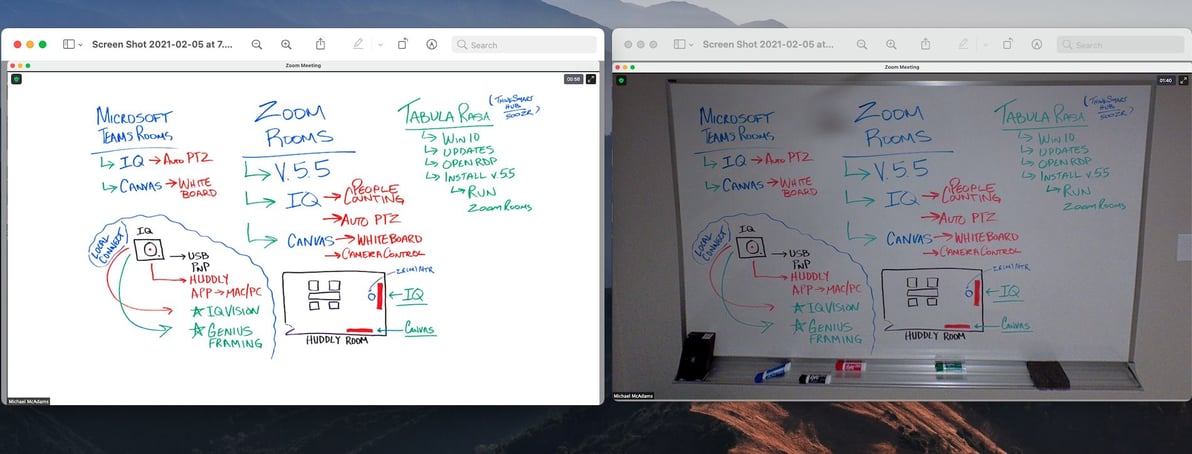 Screen Shot 2021-02-05 at 7....
Search
Zoom Meeting
00:58
MICROSOFT
TEAMS ROOMS
IQ → AUTO PTZ
CANVAS → WHITE
BOARD
ZOOM
ROOMS
V.5.5
IQ → PEOPLE
COUNTING
→ AUTO PTZ
CANVAS → WHITEBOARD
→ CAMERA CONTROL
TABULA RASA
(THINKSMART
HUB
500ZR)
WIN 10
UPDATES
OPEN RDP
INSTALL V.55
RUN
ZOOM ROOMS
LOCAL
CONNECT
IQ
→ USB
PNP
HUDDLY
APP → MAC/PC
☆ IQ VISION
☆ GENIUS
FRAMING
← IQ
← CANVAS
HUDDLY ROOM
Michael McAdams
Screen Shot 2021-02-05 at...
Search
Zoom Meeting
01:40
MICROSOFT
TEAMS ROOMS
IQ → AUTO PTZ
CANVAS → WHITE
BOARD
ZOOM
ROOMS
V.5.5
IQ → PEOPLE
COUNTING
→ AUTO PTZ
CANVAS → WHITEBOARD
→ CAMERA CONTROL
TABULA RASA
(THINKSMART
HUB
500ZR)
WIN 10
UPDATES
OPEN RDP
INSTALL V.55
RUN
ZOOM ROOMS
LOCAL
CONNECT
IQ
→ USB
PNP
HUDDLY
APP → MAC/PC
☆ IQ VISION
☆ GENIUS
FRAMING
← IQ
← CANVAS
HUDDLY ROOM
Michael McAdams